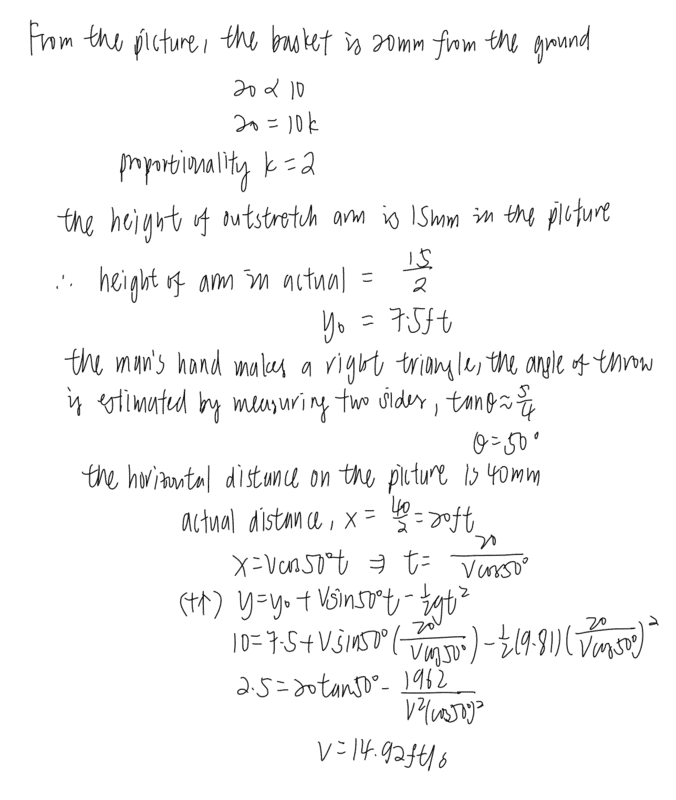 From the picture, the basket is 20mm from the ground
20 ∝ 10
20 = 10k
proportionality k = 2
the height of outstretch arm is 15mm in the picture
∴ height of arm in actual = 15/2
y₀ = 7.5ft
the man's hand makes a right triangle, the angle of throw
is estimated by measuring two sides, tanθ ≈ 5/4
θ = 50°
the horizontal distance on the picture is 40mm
actual distance, x = 40/2 = 20ft
x = Vcos50°t ⇒ t = 20/(Vcos50°)
(+↑) y = y₀ + Vsin50°t - ½gt²
10 = 7.5 + Vsin50°(20/(Vcos50°)) - ½(9.81)(20/(Vcos50°))²
2.5 = 20tan50° - 1962/(V²(cos50°)²)
V = 14.92ft/s